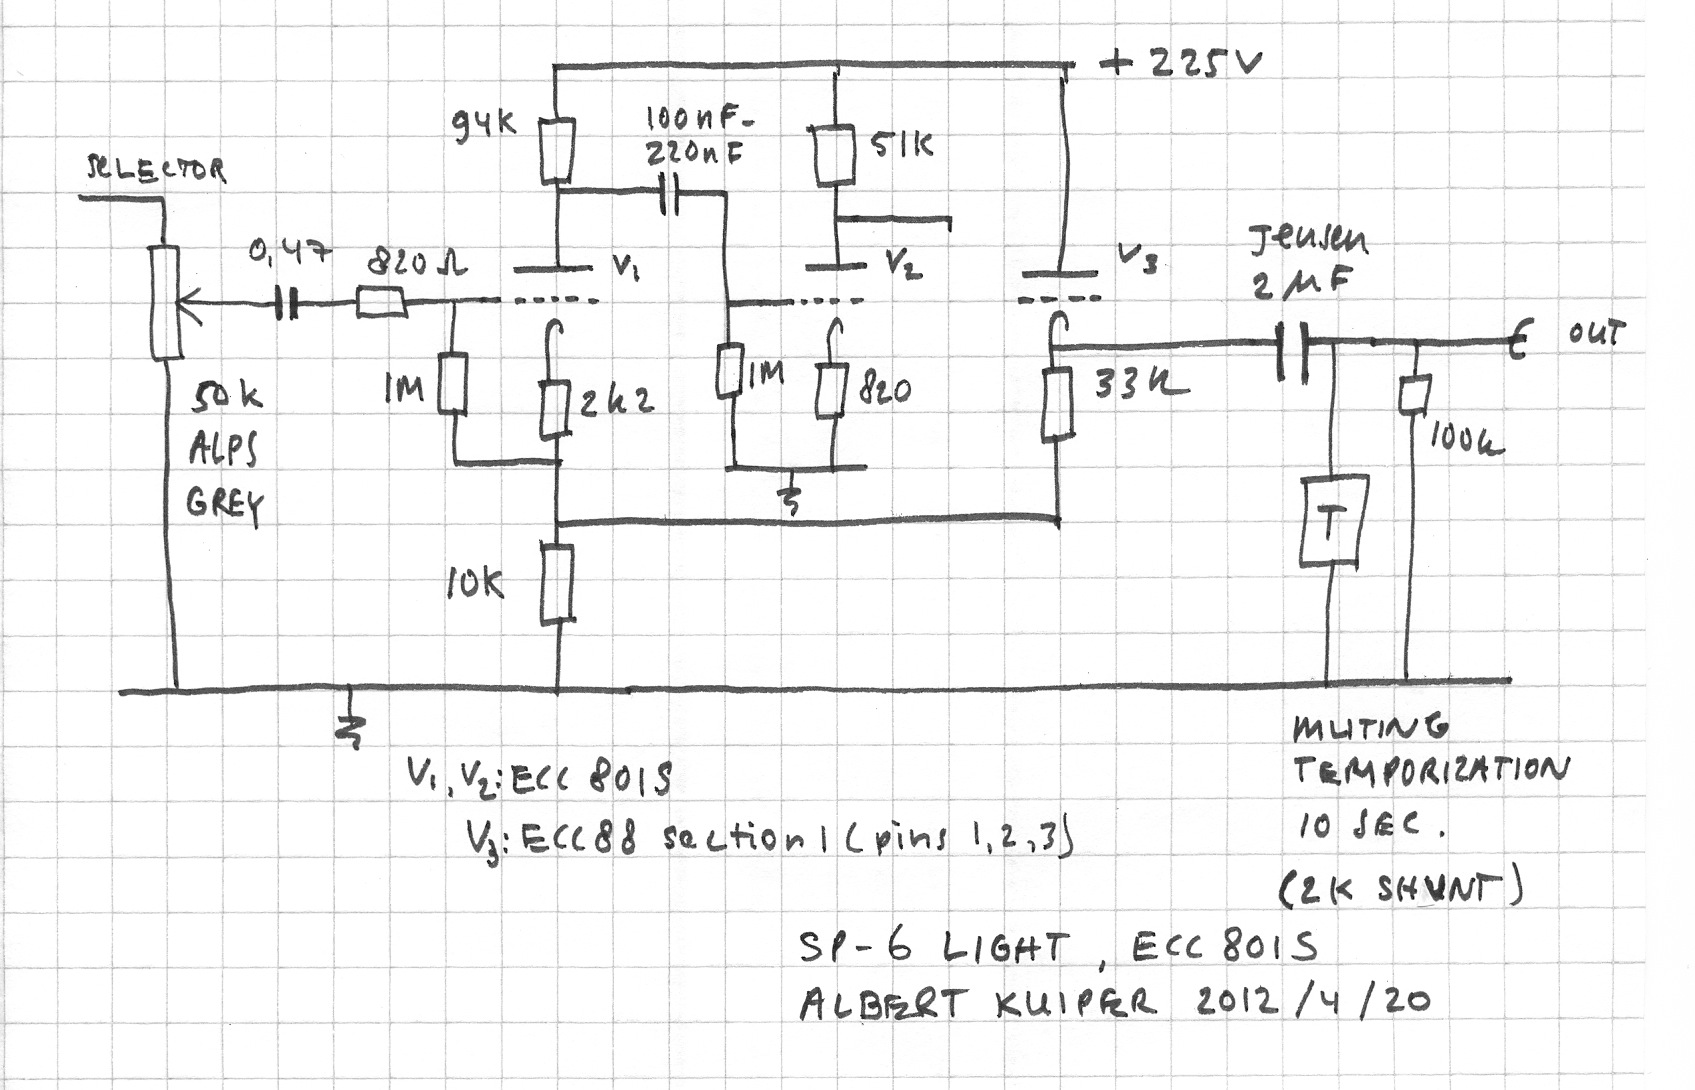 + 225V
94K
100nF-
220nF
51K
SELECTOR
0,47
820Ω
V1
V2
V3
Jensen
2 µF
OUT
50K
ALPS
GREY
1M
2k2
1M
820
33K
100k
T
10K
MUTING
TEMPORIZATION
10 SEC.
(2K SHUNT)
V1, V2: ECC 801S
V3: ECC88 section 1 (pins 1,2,3)
SP-6 LIGHT, ECC 801S
ALBERT KUIPER 2012/4/20